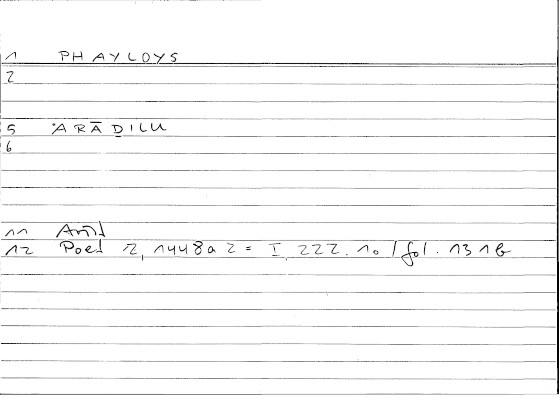 1 PHAYLOYS
2
5 ʾARĀḎILU
6
11 Arist
12 Poet 2, 1448a2 = I, 222.10 / fol. 131b